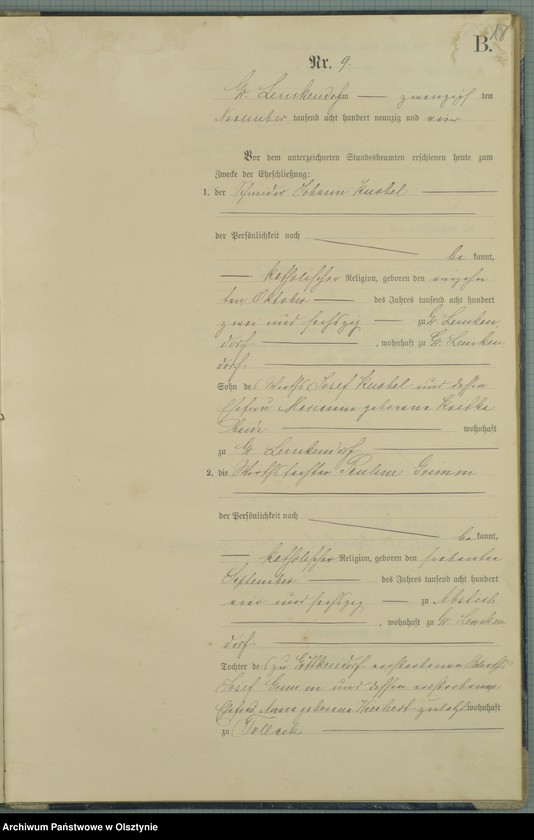 B.
18
Nr. 9.
Gr. Lemkendorf am — zwanzigsten
November tausend acht hundert neunzig und vier
Vor dem unterzeichneten Standesbeamten erschienen heute zum
Zwecke der Eheschließung:
1. der Schneider Johann Knobel
der Persönlichkeit nach
be kannt,
katholischer Religion, geboren den
ten Oktober — des Jahres tausend acht hundert
zwei und sechszig — zu Gr. Lemken
dorf, wohnhaft zu Gr. Lemken
dorf
Sohn des Wirths Josef Knobel und dessen
Ehefrau Marianna geborene
Beide — wohnhaft
zu Gr. Lemkendorf
2. die Wirthstochter Pauline Grimm
der Persönlichkeit nach
be kannt,
katholischer Religion, geboren den siebenten
September — des Jahres tausend acht hundert
vier und sechszig — zu Abstich
, wohnhaft zu Gr. Lemken
dorf
Tochter des zu verstorbenen Wirths
Josef Grimm und dessen verstorbenen
Ehefrau Anna geborene zuletzt wohnhaft
zu Tollack
Archiwum Państwowe w Olsztynie